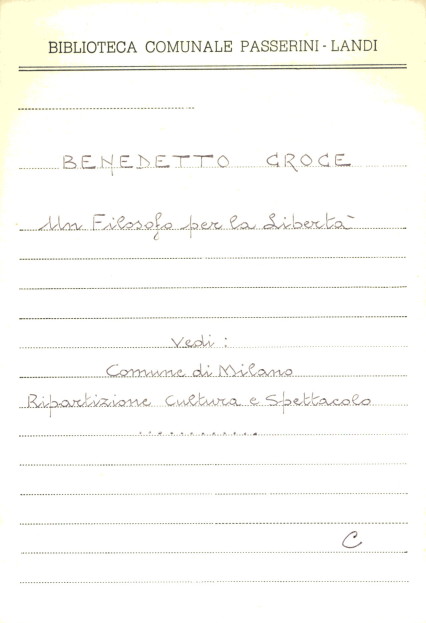 BIBLIOTECA COMUNALE PASSERINI - LANDI
BENEDETTO CROCE
Un Filosofo per la Libertà
Vedi :
Comune di Milano
Ripartizione Cultura e Spettacolo
............
C